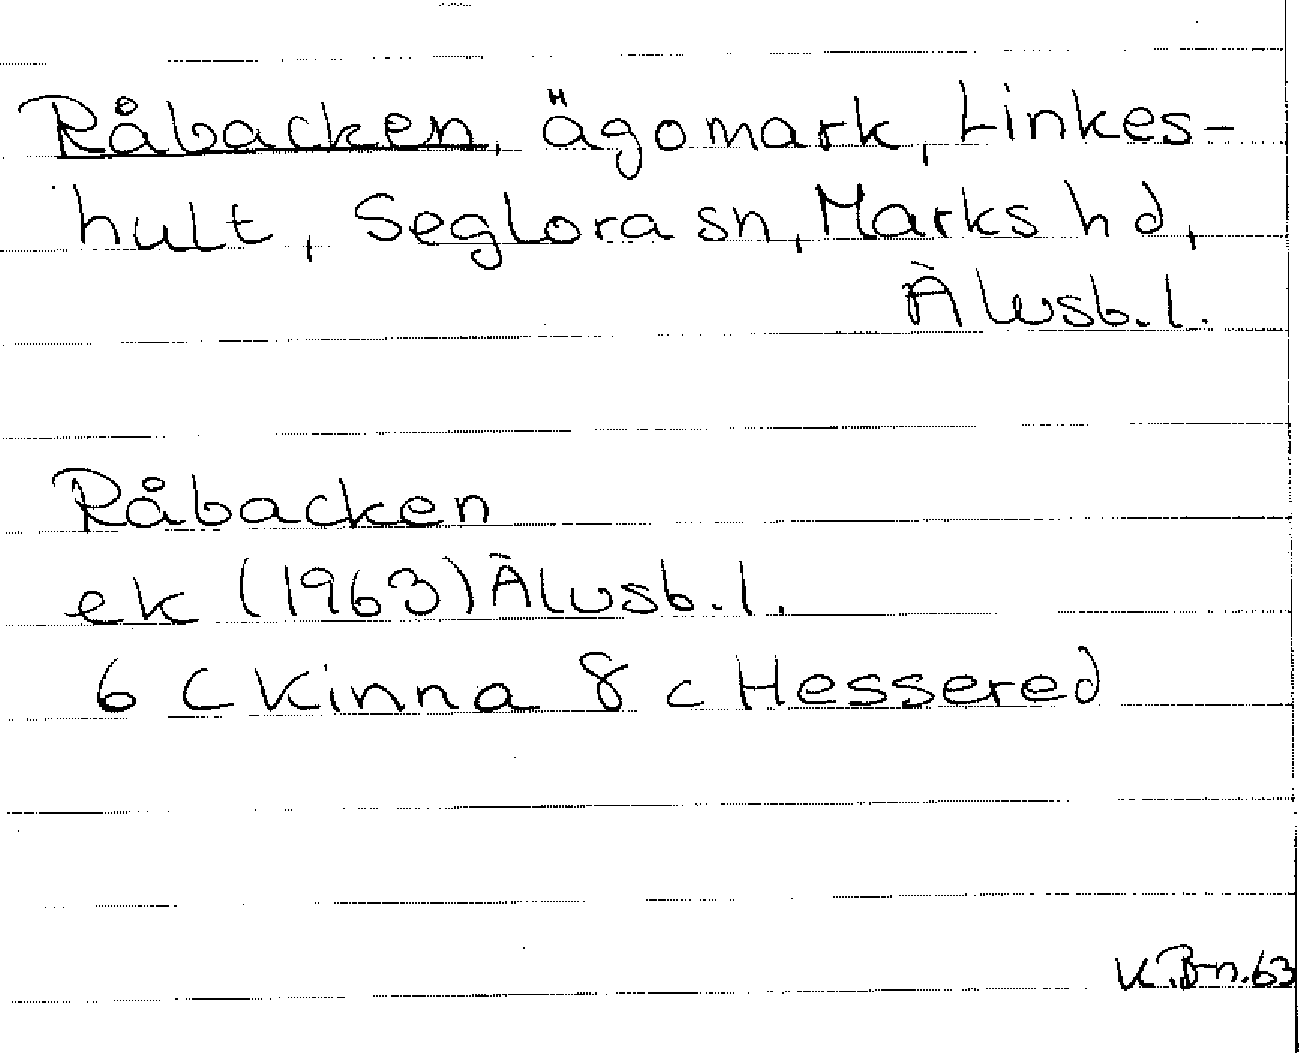 Råbacken, ägomark, Linkes-
hult, Seglora sn, Marks hd,
Älvsb.l.
Råbacken
ek (1963) Älvsb.l.
6 C Kinna 8 c Hessered
K.B-n.63